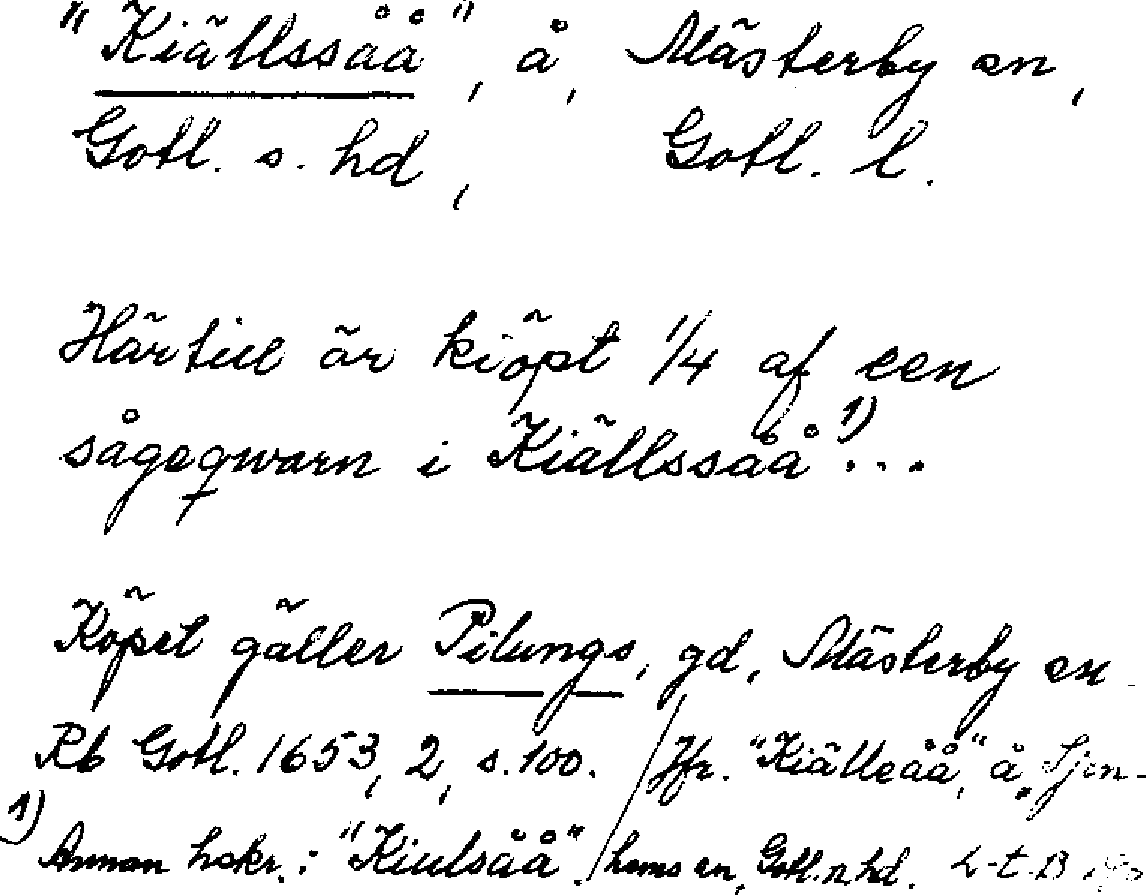 "Kiällssåå", å, Mästerby sn,
Gotl. s. hd, Gotl. l.
Härtill är kiöpt 1/4 af een
sågeqwarn i Kiällssåå 1)...
Köpet gäller Pilungs, gd, Mästerby sn
Rb Gotl. 1653, 2, s. 100. / Jfr. "Kiälleåå", å, Sjon-
1) Annan hskr.: "Kiulsåå". / hems sn, Gotl. n. hd. L-t. B